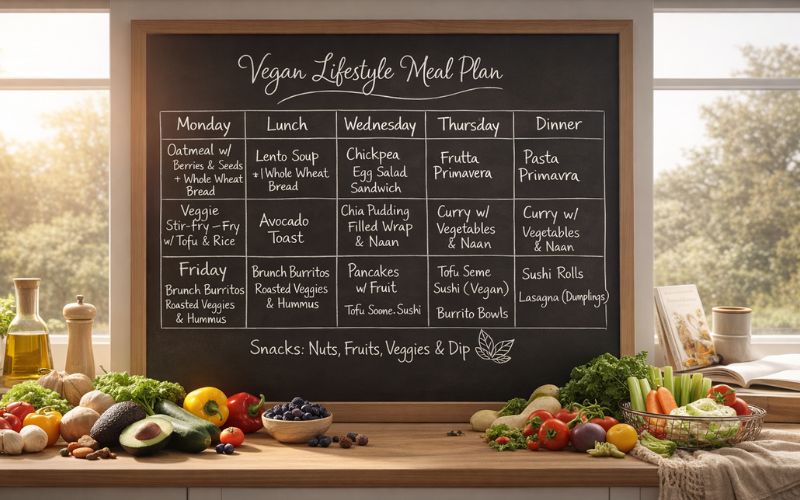 Vegan Lifestyle Meal Plan
Monday
Lunch
Wednesday
Thursday
Dinner
Oatmeal w/
Berries & Seeds
+ Whole Wheat
Bread
Lento Soup
*|Whole Wheat
Bread
Chickpea
Egg Salad
Sandwich
Frutta
Primavera
Pasta
Primavra
Veggie
Stir-fry – Fry
w/Tofu & Rice
Avocado
Toast
Chia Pudding
Filled Wrap
& Naan
Curry w/
Vegetables
& Naan
Curry w/
Vegetables
& Naan
Friday
Brunch Burritos
Roasted Veggies
& Hummus
Brunch Burritos
Roasted Veggies
& Hummus
Pancakes
w Fruit
Tofu Soone. Sushi
Tofu Seme
Sushi (Vegan)
Burrito Bowls
Sushi Rolls
Lasagna (Dumplings)
Snacks: Nuts, Fruits, Veggies & Dip